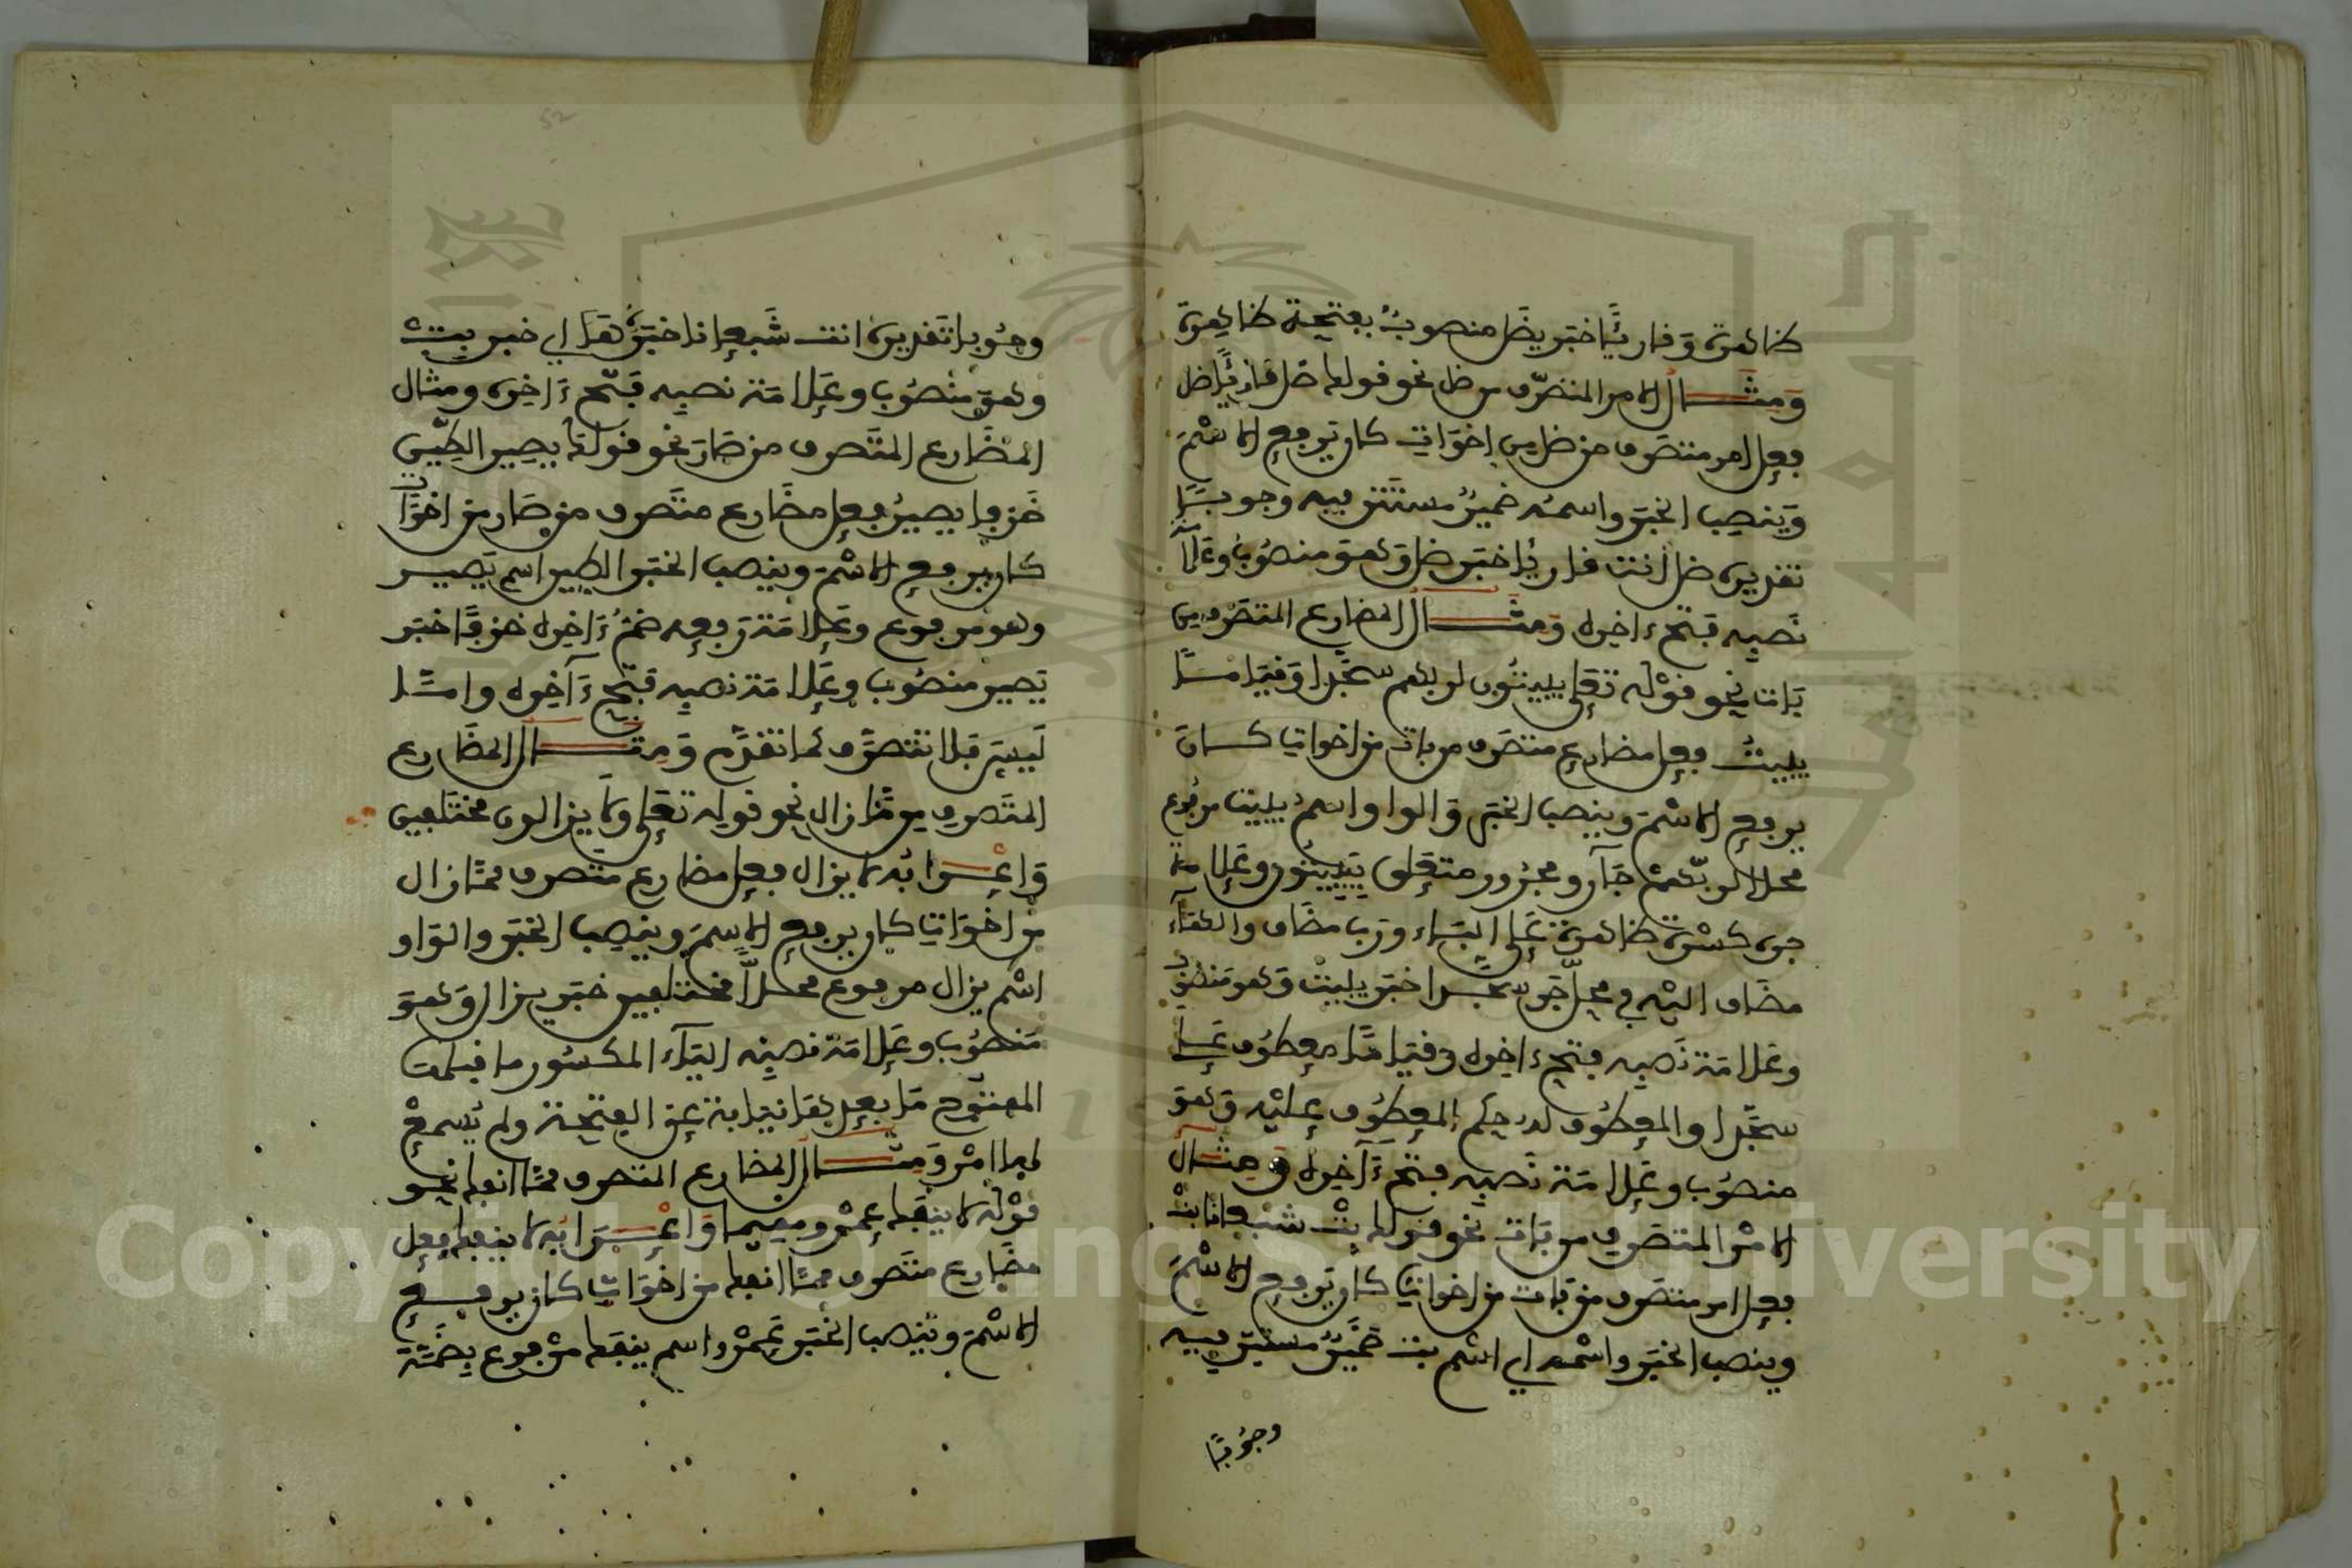 ظاهرة وقارئا خبر يظل منصوب بفتحة ظاهرة
ومثال الامر المتصرف من ظل نحو قولك ظل قارئا ظل
فعل امر متصرف من ظل من اخوات كان ترفع الاسم
وينصب الخبر واسمه ضمير مستتر فيه وجوبا
تقديره ظل انت قارئا خبر ظل وهو منصوب وعلا
نصبه فتح ءاخره ومثال المضارع المتصرف من
بات نحو قوله تعلى يبيتون لربهم سجدا وقيما مثلا
يبيت فعل مضارع متصرف من بات من اخواتها كان
يرفع الاسم وينصب الخبر والواو اسم يبيت مرفوع
محلا لربهم جار ومجرور متعلق يبيتون وعلامة
جره كسرة ظاهرة على الباء ورب مضاف والهاء
مضاف اليه في محل جر سجدا خبر يبيت وهو منصوب
وعلامة نصبه فتح ءاخره وقيما معطوف على
سجدا والمعطوف له حكم المعطوف عليه وهو
منصوب وعلامة نصبه فتح ءاخره ومثال
الامر المتصرف من بات نحو قولك بت شبعانا بت
فعل امر متصرف من بات من اخواتها كان ترفع الاسم
وينصب الخبر واسمه اي اسم بت ضمير مستتر فيه
وجوبا
وجوبا تقديره انت شبعانا خبره هذا اي خبر بت
وهو منصوب وعلامة نصبه فتح ءاخره ومثال
المضارع المتصرف من صار نحو قولك يصير الطين
خزفا يصير فعل مضارع متصرف من صار من اخوات
كان يرفع الاسم وينصب الخبر الطين اسم يصير
وهو مرفوع وعلامة رفعه ضم ءاخره خزفا خبر
يصير منصوب وعلامة نصبه فتح ءاخره وامثا
ليس فلا تتصرف كما تقدم ومثال المضارع
المتصرف من ما زال نحو قوله تعلى ولا يزالون مختلفين
واعرابه لا يزال فعل مضارع متصرف من ما زال
من اخواتها كان يرفع الاسم وينصب الخبر والواو
اسم يزال مرفوع محلا مختلفين خبر يزال وهو
منصوب وعلامة نصبه الياء المكسور ما قبلها
المفتوح ما بعدها نيابة عن الفتحة ولم يسمع
لها امر ومثال المضارع المتصرف من ما انفك نحو
قولك لا ينفك عمرو مقيما واعرابه لا ينفك فعل
مضارع متصرف من ما انفك من اخواتها كان يرفع
الاسم وينصب الخبر عمرو اسم ينفك مرفوع بضمة
52
Copyright © King Saud University